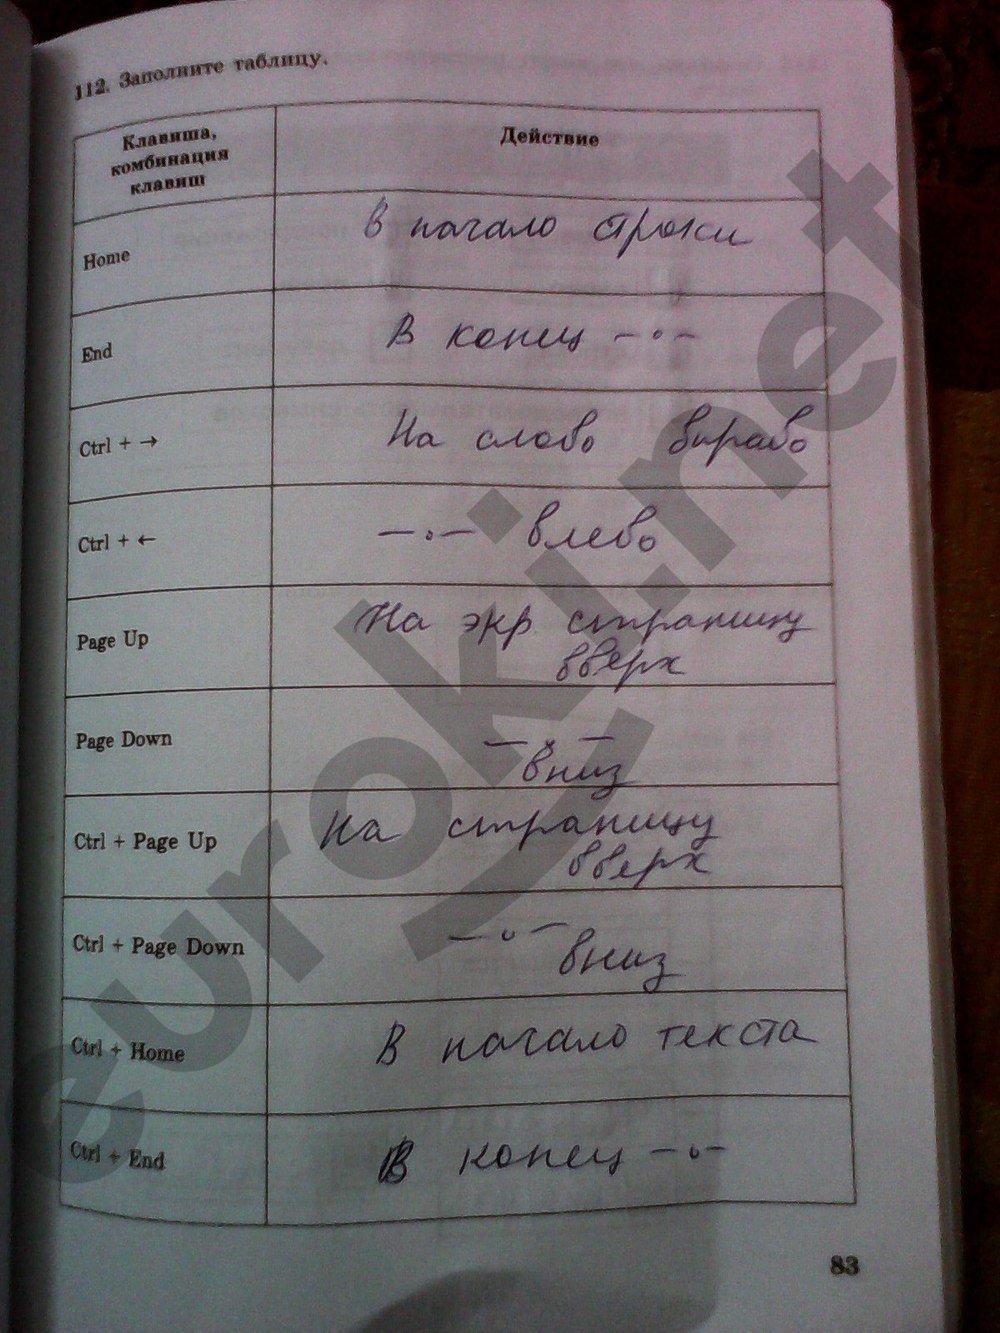 112. Заполните таблицу.
Клавиша,
комбинация
клавиш
Действие
Home
В начало строки
End
В конец —·—
Ctrl + →
На слово вправо
Ctrl + ←
—·— влево
Page Up
На экр. страницу
вверх
Page Down
—·—
вниз
Ctrl + Page Up
На страницу
вверх
Ctrl + Page Down
—·—
вниз
Ctrl + Home
В начало текста
Ctrl + End
В конец —·—
83
eurokin.net